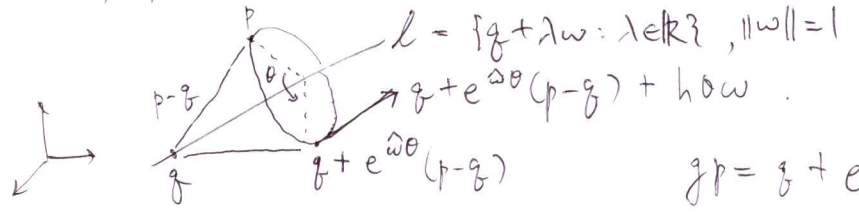 p
l = {q + λω : λ∈ℝ} , ||ω|| = 1
θ
p-q
q + e^{ω̂θ}(p-q) + hθω .
q
q + e^{ω̂θ}(p-q)
gp = q + e